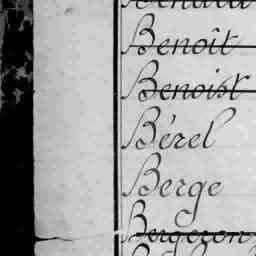 Benoît
Benoist
Bérel
Berge
Bergeron